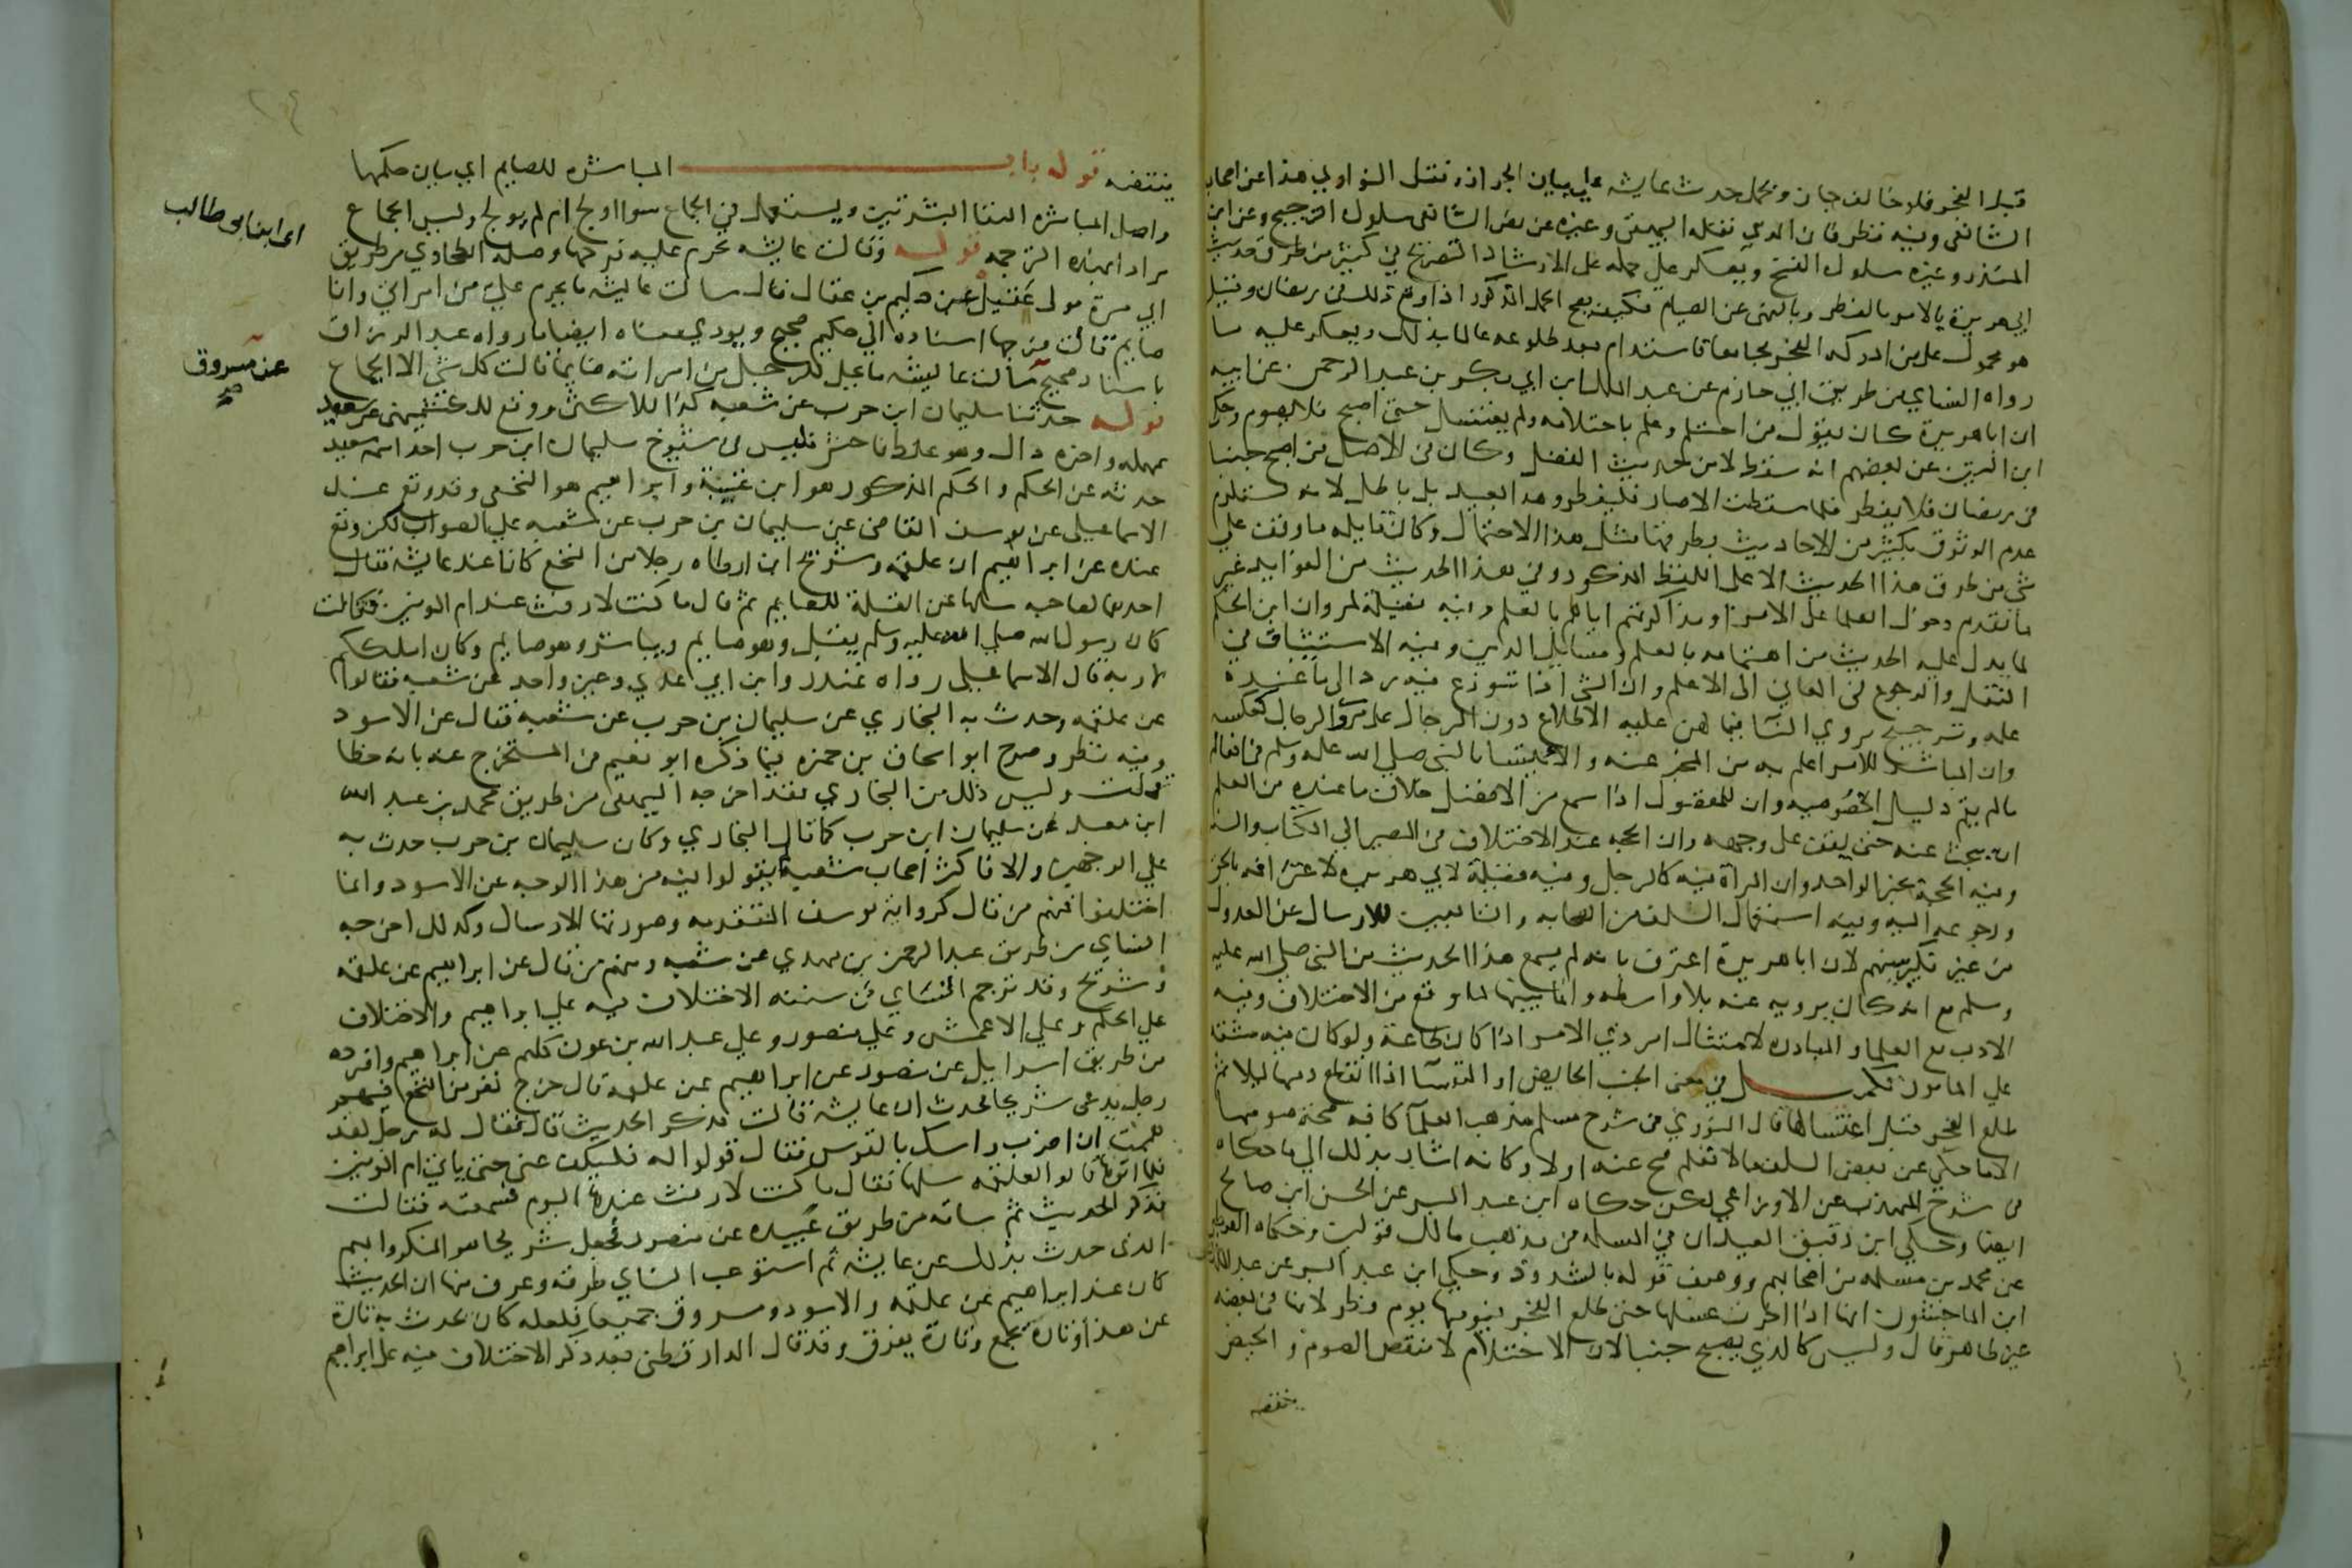 قبل الفجر فلو خالف جاز ومحمل حديث عايشة علي بيان الجواز ونقل النواوي هذا عن اصحاب
الشافعي وفيه نظر فان الذي نقله البيهقي وغيره عن نص الشافعي سلوك الترجيح وعن ابن
المنذر وغيره سلوك النسخ ويعكر علي حمله علي الارشاد التصريح في كثير من طرق حديث
ابي هريرة بالامر بالفطر وبالنهي عن الصيام فكيف يصح الحمل المذكور اذا وقع ذلك في رمضان وقيل
هو محمول علي من ادركه الفجر مجامعا فاستدام بعد طلوعه عالما بذلك ويعكر عليه ما
رواه النساي من طريق ابي حازم عن عبد الملك ابن ابي بكر بن عبد الرحمن عن ابيه
ان ابا هريرة كان يقول من احتلم وعلم باحتلامه ولم يغتسل حتى اصبح فلا يصوم وحكي
ابن التين عن بعضهم انه سقط لا من حديث الفضل وكان في الاصل من اصبح جنبا
في رمضان فلا يفطر فلما سقطت لا صار فليفطر وهذا بعيد بل باطل لانه يستلزم
عدم الوثوق بكثير من الاحاديث يطرقها مثل هذا الاحتمال وكان قايله ما وقف علي
شي من طرق هذا الحديث الا علي اللفظ المذكور وفي هذا الحديث من الفوايد غير
ما تقدم دخول العلما علي الامرا ومذاكرتهم اياهم بالعلم وفيه فضيلة لمروان ابن الحكم
لما يدل عليه الحديث من اهتمامه بالعلم ومسايل الدين وفيه الاستثبات في
النقل والرجوع في المعاني الي الاعلم وان الشي اذا تنوزع فيه يرد الي ما عنده
علمه وترجيح مروي النسا فيما لهن عليه الاطلاع دون الرجال علي مروي الرجال كعكسه
وان المباشر للامر اعلم به من المخبر عنه والايتسا بالنبي صلي الله عليه وسلم في افعاله
ما لم يقم دليل الخصوصيه وان للمفضول اذا سمع من الافضل خلاف ما عنده من العلم
ان يبحث عنه حتى يقف علي وجهه وان الحجه عند الاختلاف في المصير الي الكتاب والسنه
وفيه الحجة بخبر الواحد وان المرأة فيه كالرجل وفيه فضيلة لابي هريره لاعترافه بالحق
ورجوعه اليه وفيه استعمال السلف من الصحابه والتابعين للارسال عن العدول
من غير نكير بينهم لان ابا هريرة اعترف بانه لم يسمع هذا الحديث من النبي صلي الله عليه
وسلم مع انه كان يرويه عنه بلا واسطه وانما بينها لما وقع من الاختلاف وفيه
الادب مع العلما والمبادره لامتثال امر ذي الامر اذا كان طاعة ولو كان فيه مشقة
علي المامور تكمـــــله في معنى الجنب الحايض او النفسا اذا انقطع دمها ليلا ثم
طلع الفجر قبل اغتسالها قال النووي في شرح مسلم مذهب العلما كافه صحة صومها
الا ما حكي عن بعض السلف ما لا نعلم صح عنه اولا وكانه اشار بذلك الي ما حكاه
في شرح المهذب عن الاوزاعي لكن حكاه ابن عبد البر عن الحسن ابن صالح
ايضا وحكي ابن دقيق العيد ان في المسله في مذهب مالك قولين وحكاه القرطبي
عن محمد بن مسلمه من اصحابهم ووصف قوله بالشذوذ وحكي ابن عبد البر عن عبد الملك
ابن الماجشون انها اذا اخرت غسلها حتى طلع الفجر فيومها يوم فطر لانها في بعضه
غير طاهر قال وليس كالذي يصبح جنبا لان الاحتلام لا ينقض الصوم والحيض
ينقضه
ينقضه قوله باب المباشره للصايم اي بيان حكمها
واصل المباشره التقا البشرتين ويستعمل في الجماع سوا اولج ام لم يولج وليس الجماع
مرادا بهذه الترجمه قوله وقالت عايشه يحرم عليه فرجها وصله الطحاوي من طريق
ابي مرة مولي عقيل عن حكيم بن عقال قال سالت عايشه ما يحرم علي من امراتي وانا
اي ابن ابي طالب
صايم قالت فرجها اسناده الي حكيم صحيح ويودي معناه ايضا ما رواه عبد الرزاق
باسناد صحيح سالت عايشه ما يحل للرجل من امراته صايما قالت كل شي الا الجماع
عن مسروق صح
قوله حدثنا سليمان ابن حرب عن شعبه كذا للاكثر ووقع للكشميهني عن سعيد
بمهمله واخره دال وهو غلط فاحش فليس في شيوخ سليمان ابن حرب احد اسمه سعيد
حدثه عن الحكم والحكم المذكور هو ابن عتيبة وابراهيم هو النخعي وقد وقع عند
الاسماعيلي عن يوسف القاضي عن سليمان بن حرب عن شعبه علي الصواب لكن وقع
عنده عن ابراهيم ان علقمه وشريح ابن ارطاه رجلا من النخع كانا عند عايشه فقال
احدهما لصاحبه سلها عن القبلة للصايم ثم قال ما كنت لارفث عند ام المومنين فقالت
كان رسول الله صلي الله عليه وسلم يقبل وهو صايم ويباشر وهو صايم وكان املككم
لاربه قال الاسماعيلي رواه غندر وابن ابي عدي وغير واحد عن شعبه فقالوا
عن علقمه وحدث به البخاري عن سليمان بن حرب عن شعبه فقال عن الاسود
وفيه نظر وصرح ابو اسحاق بن حمزه فيما ذكره ابو نعيم في المستخرج عنه بانه خطا
قلت وليس ذلك من البخاري فقد اخرجه البيهقي من طريق محمد بن عبد الله
ابن معبد عن سليمان ابن حرب كما قال البخاري وكان سليمان بن حرب حدث به
علي الوجهين والا فاكثر اصحاب شعبه لم يقولوا فيه من هذا الوجه عن الاسود وانما
اختلفوا فمنهم من قال كرواية يوسف المتقدمه وصورتها الارسال وكذلك اخرجه
النساي من طريق عبد الرحمن بن مهدي عن شعبه ومنهم من قال عن ابراهيم عن علقمه
وشريح وقد ترجم النساي في سننه الاختلاف فيه علي ابراهيم والاختلاف
علي الحكم وعلي الاعمش وعلي منصور وعلي عبد الله بن عون كلهم عن ابراهيم واورده
من طريق اسرايل عن منصور عن ابراهيم عن علقمه قال خرج نفر من النخع فيهم
رجل يدعى شريحا فحدث ان عايشه قالت فذكر الحديث قال فقال له رجل لقد
هممت ان اضرب راسك بالقوس فقال قولوا له فليكف عني حتى ياتي ام المومنين
فلما اتوها قالوا لعلقمه سلها فقال ما كنت لارفث عندها اليوم فسمعته فقالت
فذكر الحديث ثم ساقه من طريق عبيده عن منصور فجعل شريحا هو المنكر وابهم
الذي حدث بذلك عن عايشه ثم استوعب النساي طرقه وعرف منها ان الحديث
كان عند ابراهيم عن علقمه والاسود ومسروق جميعا فلعله كان يحدث به تارة
عن هذا وتارة يجمع وتارة يفرق وقد قال الدارقطني بعد ذكر الاختلاف فيه علي ابراهيم